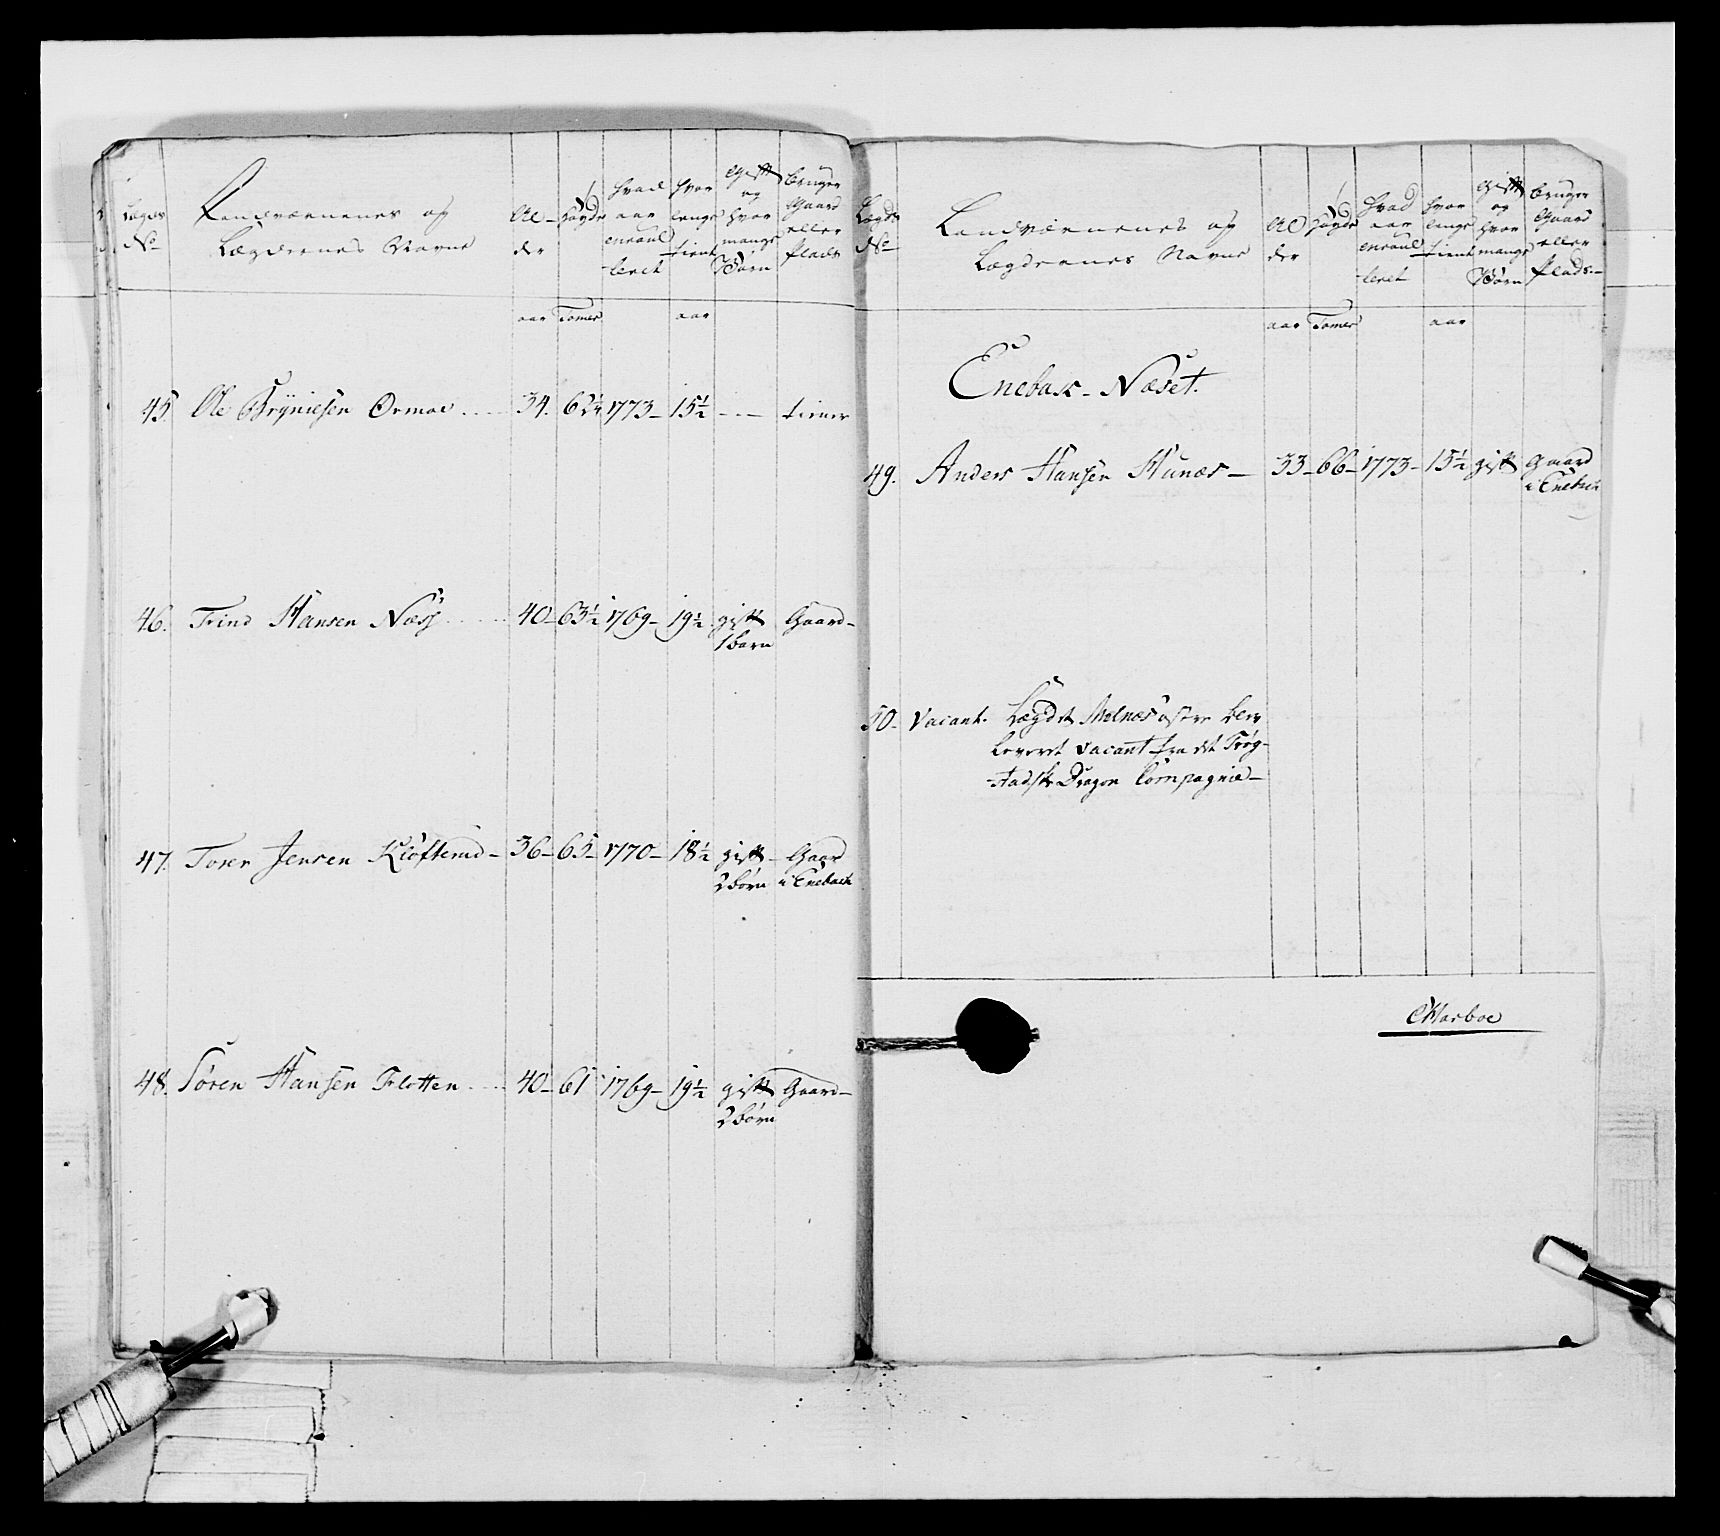 Lægds No
Landværnenes og Lægdernes Navne
Al- der
Høyde
hvad aar enroul- leret
hvor lenge tient
Gift og hvor mange Børn
bruger Gaard eller Plads
aar Tomer aar
45. Ole Brÿnielsen Ormoe .... 34. 62½ 1773- 15½ - - - tiener
46. Trind Hansen Næss ..... 40- 63½ 1769- 19½ gift Gaard-
1 barn
47. Torer Jensen Kløfterud - 36- 65- 1770- 18½ gift- Gaar
2 børn i Eneback
48. Søren Hansen Flotten .... 40- 61 1769- 19½ gift Gaard-
2 børn
Lægds No
Landværnenes og Lægdernes Navne
Al der
Høyde
hvad aar enroul- leret
hvor lenge tient
gift og hvor mange Børn
bruger Gaard eller Plads-
aar Tomer aar
Enebak- Næset.
49. Anders Hansen Hunæs - 33- 66- 1773- 15½ gift Gaard
i Eneback
50- Vacant. Lægdet Melnæs østre blev
leveret vacant fra det Trøg-
stadske Dragon Compagnie-
CHarboe